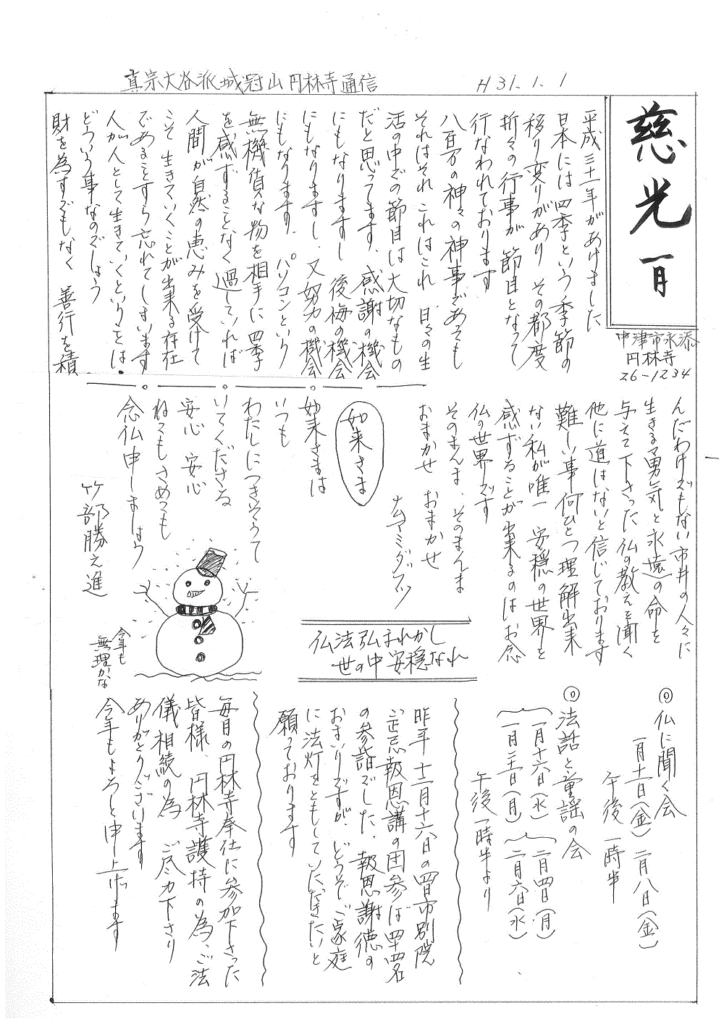 真宗大谷派城冠山円林寺通信
H31.1.1
慈光 一月
中津市永添
円林寺
26-1234
平成三十一年があけました
日本には四季という季節の
移り変りがあり その都度
折々の行事が節目となって
行なわれております
八百万の神々の神事であっても
それはそれ これはこれ 日々の生
活の中での節目は大切なもの
だと思てます、感謝の機会
にもなりますし 後悔の機会
にもなりますし、又努力の機会
にもなります、パソコンという
無機質な物を相手に四季
を感ずることなく過していれば
人間が自然の恵みを受けて
こそ 生きていくことが出来る存在
であることすら忘れてしまいます
人が人として生きていくということは
どういう事なのでしょう
財を為すでもなく 善行を積
んだわけでもない市井の人々に
生きる勇気と永遠の命を
与えて下さった仏の教えを聞く
他に道はないと信じております
難しい事何ひとつ理解出来
ない私が唯一 安穏の世界を
感ずることが出来るのはお念
仏の世界です
そのまんま、そのまんま
おまかせ おまかせ
ナムアミダブツ
如来さま
如来さまは
いつも
わたしにつきそうて
いてくださる
安心 安心
ねてもさめても
念仏申しましょう
竹部勝之進
今年も
無理かな
仏法弘まれかし
世の中安穏なれ
◎仏に聞く会
一月十一日(金) 二月八日(金)
午後一時半
◎法話と童謡の会
一月十六日(水) 二月四日(月)
一月二十一日(月) 二月六日(水)
午後一時半より
昨年十二月十六日の四日市別院
御正忌報恩講の団参は四十四名
の参詣でした、報恩謝徳の
おまいりですが、どうぞご家庭
に法灯をともしていただきたいと
願っております
毎月の円林寺奉仕に参加下さった
皆様、円林寺護持の為、ご法
儀相続の為 ご尽力下さり
ありがとうございます
今年もよろしく申し上げます